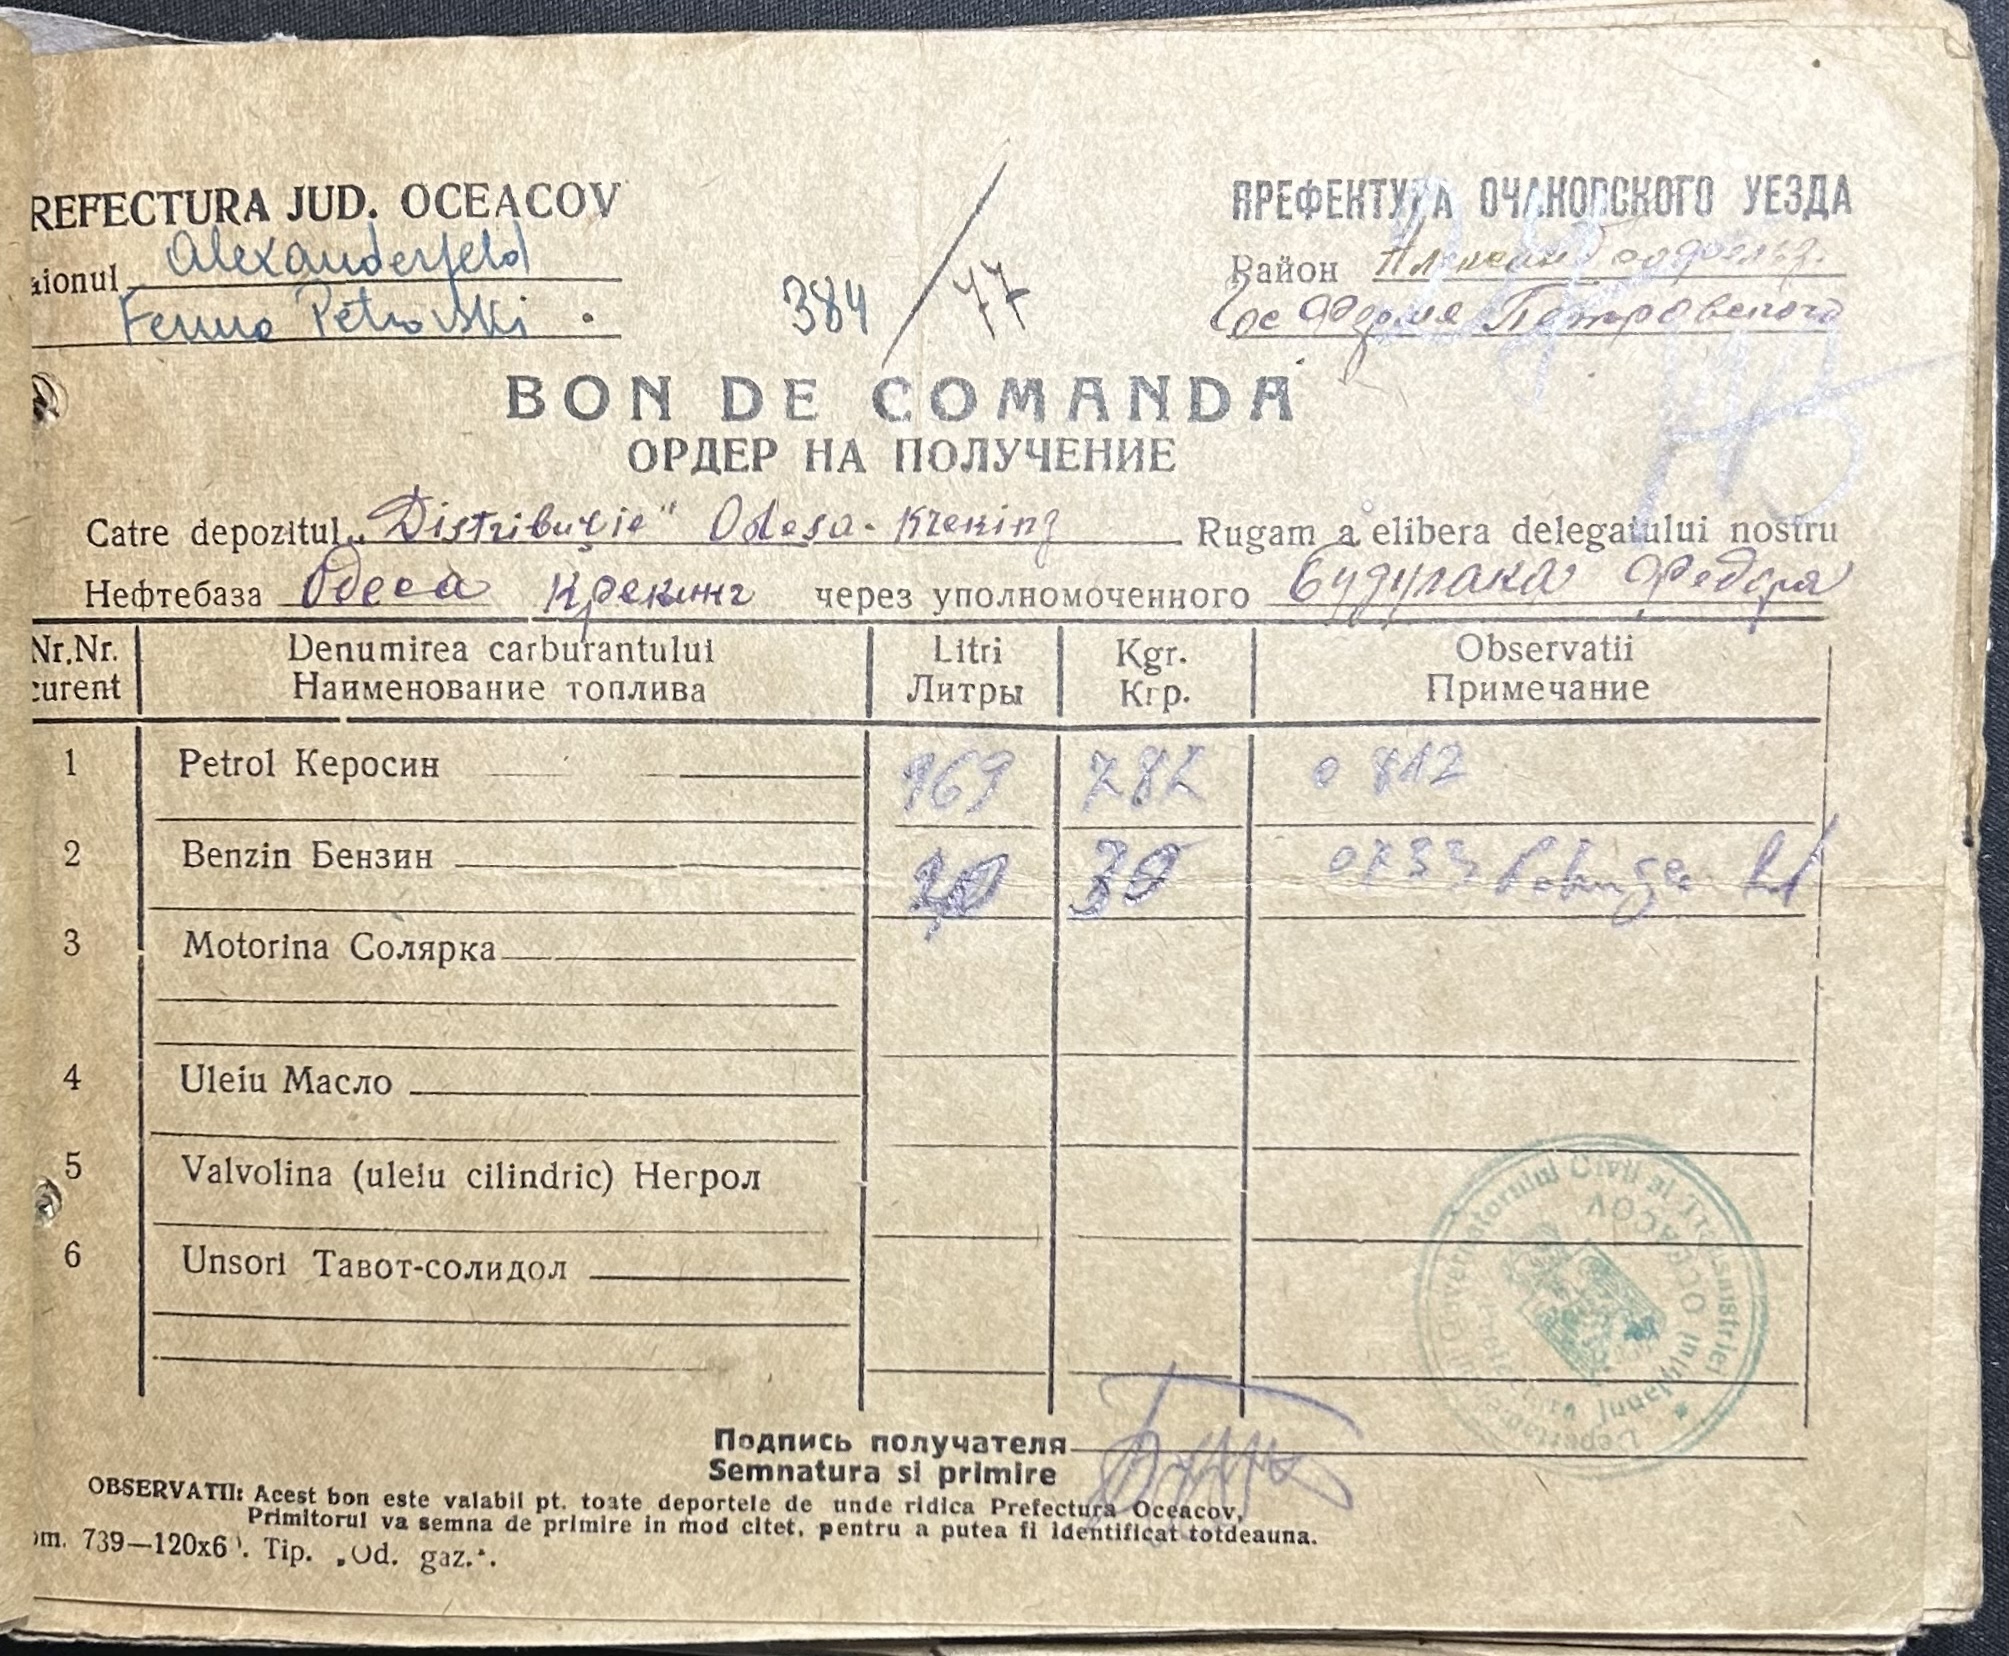 REFECTURA JUD. OCEACOV
aionul Alexanderfeld
Ferma Petrovski
384 / 77
ПРЕФЕКТУРА ОЧАКОВСКОГО УЕЗДА
Район
Гос Ферма Петровского
BON DE COMANDA
ОРДЕР НА ПОЛУЧЕНИЕ
Catre depozitul „Distribuţie" Odesa - Kreking Rugam a elibera delegatului nostru
Нефтебаза Одеса Крекинг через уполномоченного Будулака Федора
Nr.Nr. curent Denumirea carburantului Litri Kgr. Observatii
Наименование топлива Литры Кгр. Примечание
1 Petrol Керосин 969 787 0 812
2 Benzin Бензин 30 0733
3 Motorina Солярка
4 Uleiu Масло
5 Valvolina (uleiu cilindric) Негрол
6 Unsori Тавот-солидол
Guvernatorului Civil al Transnistriei
Judeţului OCEACOV
Подпись получателя
Semnatura si primire
OBSERVATII: Acest bon este valabil pt. toate deportele de unde ridica Prefectura Oceacov,
Primitorul va semna de primire in mod citet, pentru a putea fi identificat totdeauna.
om. 739—120x6 . Tip. „Od. gaz.".